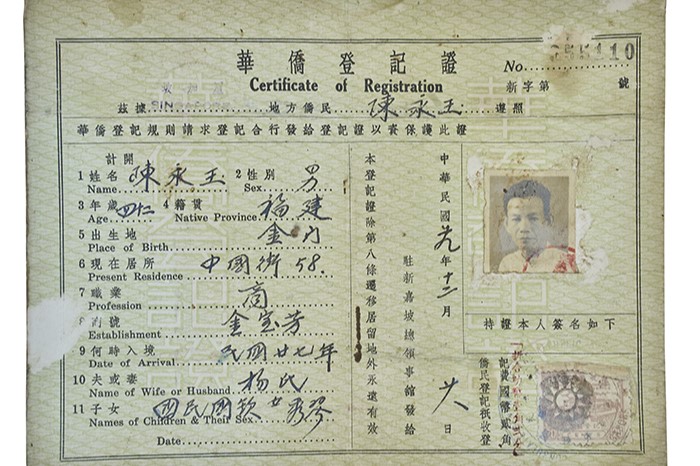 華僑登記證
Certificate of Registration
No.
110
新字第 號
茲據 地方僑民 陳永玉 遵照
華僑登記規則請求登記合行發給登記證以資保護此證
計開
1 姓名 陳永玉 2 性別 男
Name Sex
3 年歲 四十二 4 籍貫 福建
Age Native Province
5 出生地 金門
Place of Birth
6 現在居所 中國街 58.
Present Residence
7 職業 商
Profession
8 號 金寶芳
Establishment
9 何時入境 民國廿七年
Date of Arrival
10 夫或妻 楊氏
Name of Wife or Husband
11 子女 國民國欽 女秀琴
Names of Children & Their Sex
Date
本登記證除第八條遷移居留地外永遠有效
中華民國 廿九 年 十二 月 廿八 日
駐新嘉坡總領事館發給
持證本人簽名如下
記費國幣貳角
僑民登記祇收登